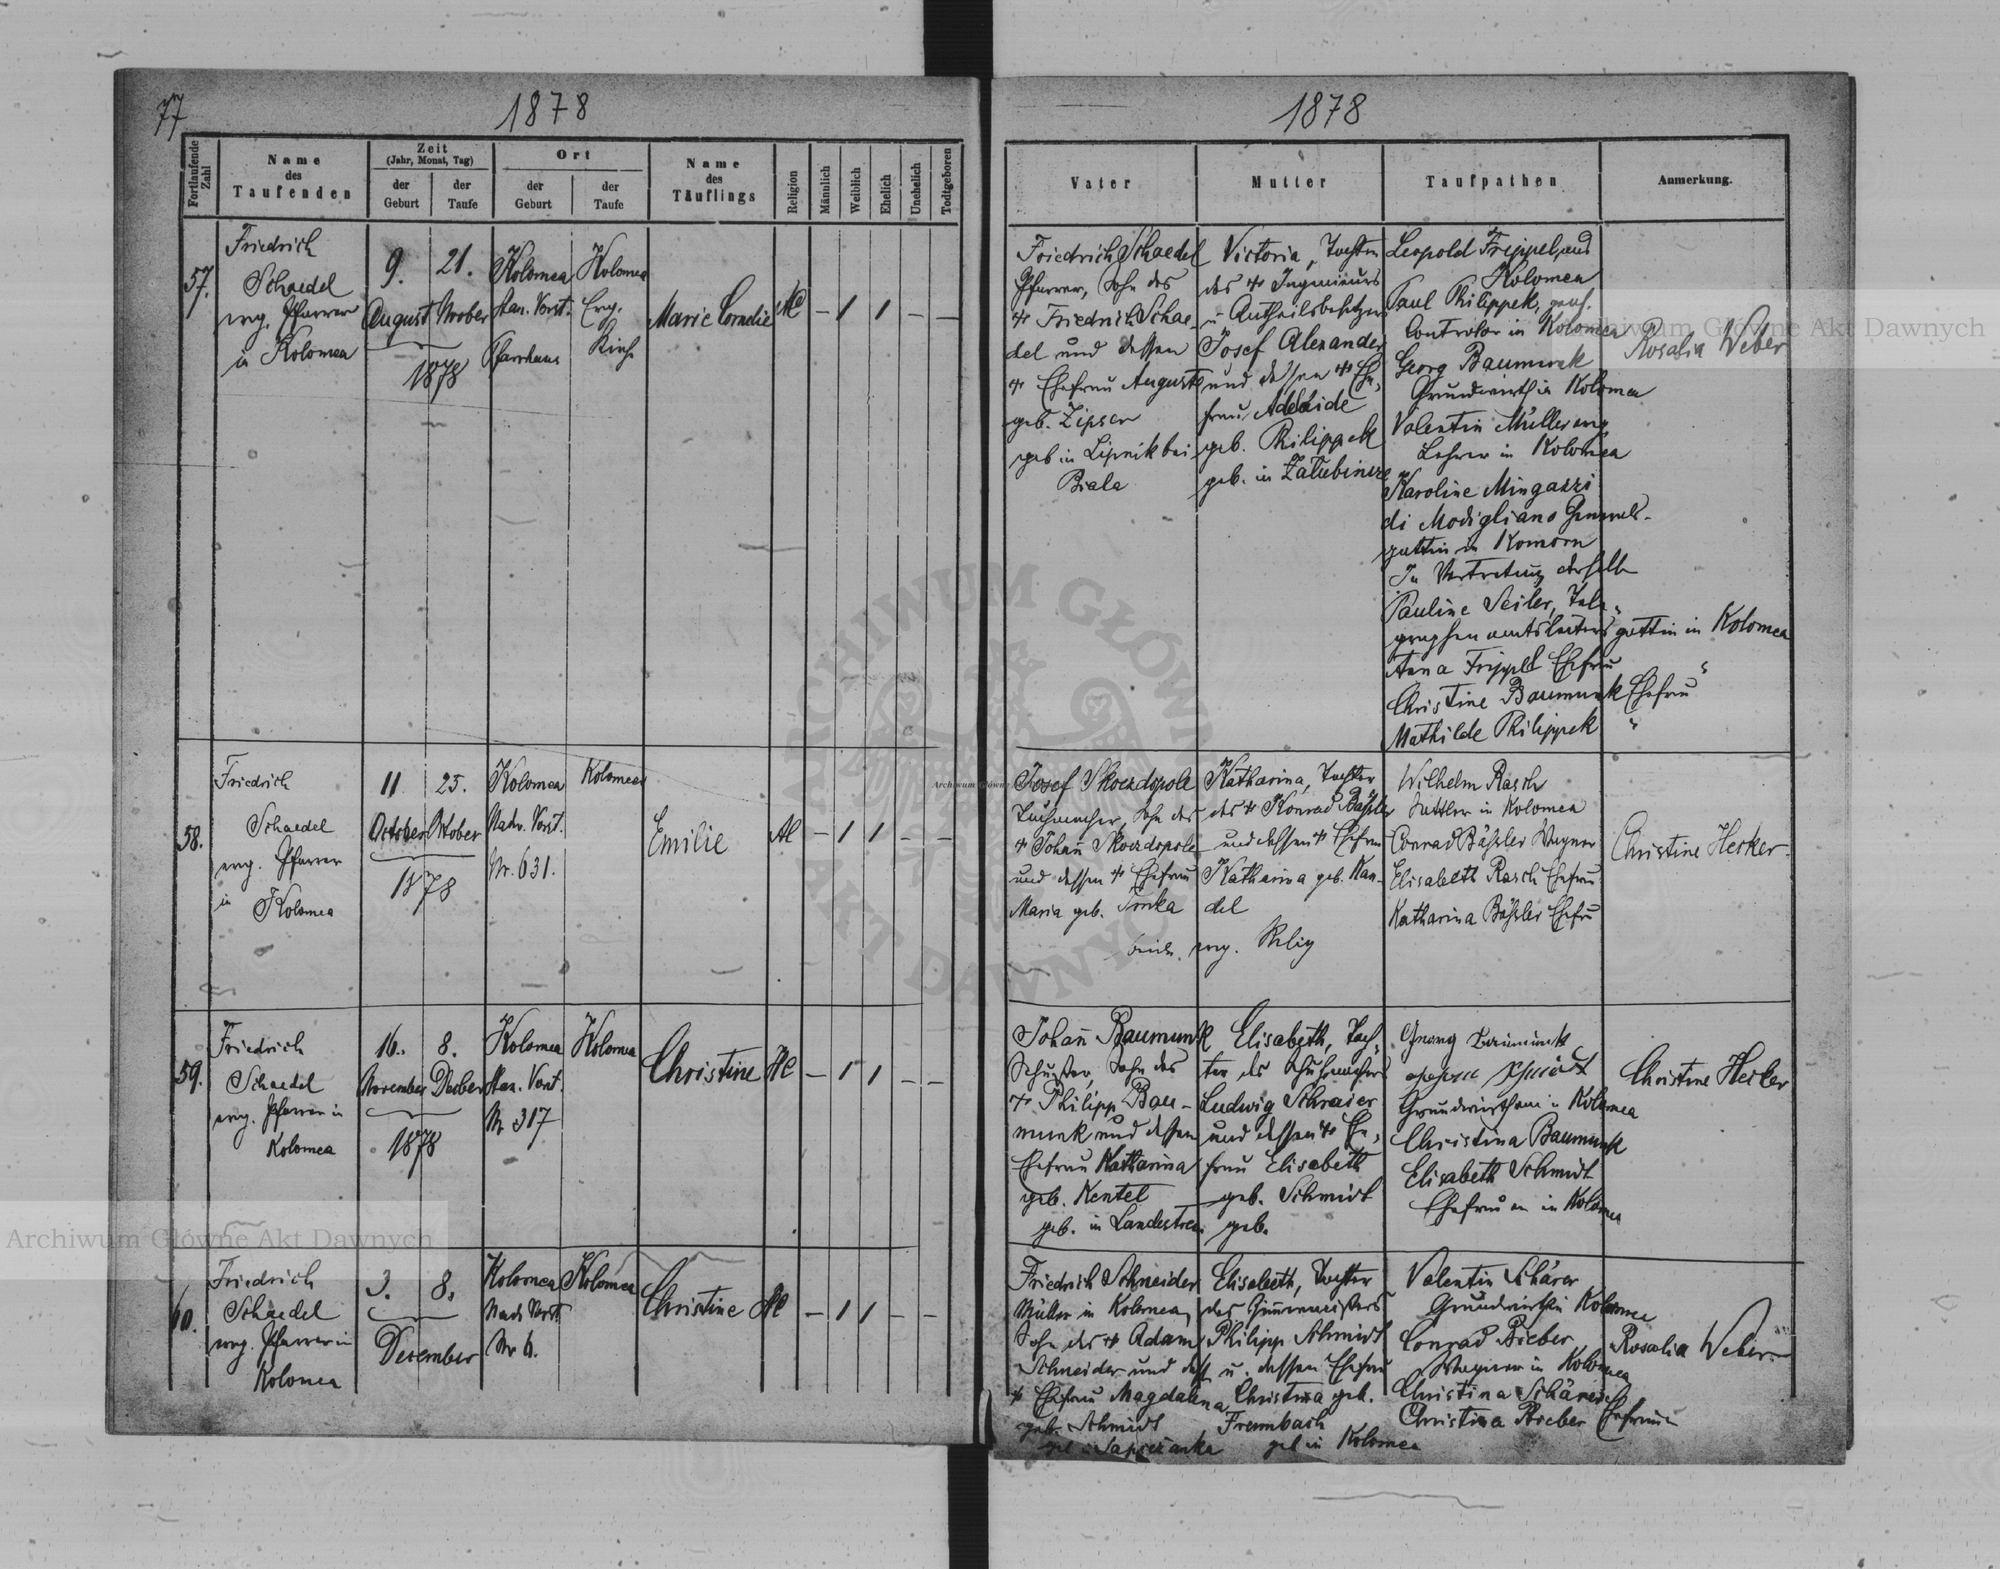 77
1878
1878
Fortlaufende Zahl
Name des Taufenden
Zeit
(Jahr, Monat, Tag)
der Geburt
der Taufe
Ort
der Geburt
der Taufe
Name des Täuflings
Religion
Männlich
Weiblich
Ehelich
Unehelich
Todtgeboren
Vater
Mutter
Taufpathen
Anmerkung.
57.
Friedrich
Schaedel
evg. Pfarrer
in Kolomea
9.
August
21.
1878
Kolomea
Stan. Vorst.
Pfarrhaus
Kolomea
Evg.
Kirche
Marie Cornelie
AC
– 1 1 – –
Friedrich Schaedel
Pfarrer, Sohn des
† Friedrich Schae-
del und dessen
† Ehefrau Auguste
geb. Zipser
geb in Lipnik bei
Biala
Victoria, Tochter
des † Ingenieurs
u. Antheilsbesitzers
Josef Alexander
und dessen † Ehe-
frau Adelaide
geb. Philippek
geb. in
Leopold Frippel, and
Kolomea
Paul Philippek, gewes.
Controlor in Kolomea
Georg Baumunk
Grundwirth in Kolomea
Valentin Müller evg
Lehrer in Kolomea
Karoline Mingazzi
di Modigliano Generals-
gattin in Komorn
In Vertretung derselben
Pauline Seiler, Tele-
graphenamtsleiters gattin in Kolomea
Anna Frippel Ehefrau "
Christine Baumunk Ehefrau
Mathilde Philippek "
Rosalia Weber
58.
Friedrich
Schaedel
evg. Pfarrer
in
Kolomea
11
October
25.
Oktober
1878
Kolomea
Nadw. Vorst.
Nr. 631.
Kolomea
Emilie
AC
– 1 1 – –
Josef Skorzdopole
Tuchmacher, Sohn des
† Johan̄ Skorzdopole
und dessen † Ehefrau
Maria geb.
Katharina, Tochter
des † Konrad Bäßler
und dessen † Ehefrau
Katharina geb. Kan-
del
beide evg. Relig
Wilhelm Rasch
Sattler in Kolomea
Conrad Bäßler Wagner
Elisabeth Rasch Ehefrau
Katharina Bäßler Ehefr
Christine Herker
59.
Friedrich
Schaedel
evg. Pfarrer in
Kolomea
16.
November
8.
Decber
1878
Kolomea
Stan. Vorst.
Nr 317
Kolomea
Christine
AC
– 1 1 – –
Johan̄ Baumunk
Schuster, Sohn des
† Philipp Bau-
munk und dessen
Ehefrau Katharina
geb. Kentel
geb. in Landestreu
Elisabeth, Toch-
ter des Schuhmachers
Ludwig Schraier
und dessen † Ehe-
frau Elisabeth
geb. Schmidt
geb.
Georg Baumunk
Schmidt
Grundwirthe in Kolomea
Christina Baumunk
Elisabeth Schmidt
Ehefrauen in Kolomea
Christine Herker
60.
Friedrich
Schaedel
evg. Pfarrer in
Kolomea
3.
8.
December
Kolomea
Nadw Vorst
Nr 6.
Kolomea
Christine
AC
– 1 1 – –
Friedrich Schneider
Müller in Kolomea,
Sohn des † Adam
Schneider und dess
† Ehefrau Magdalena
geb. Schmidt
Elisabeth, Tochter
des Zimmermeisters
Philipp Schmidt
u. dessen Ehefrau
Christina geb.
Frembach
geb in Kolomea
Valentin Schärer
Grundwirth in Kolomea
Conrad Bieber
Wagner in Kolomea
Christina Schärer
Christina Bieber Ehefrauen
Rosalia Weber
Archiwum Główne Akt Dawnych
Archiwum Główne Akt Dawnych
ARCHIWUM GŁÓWNE AKT DAWNYCH